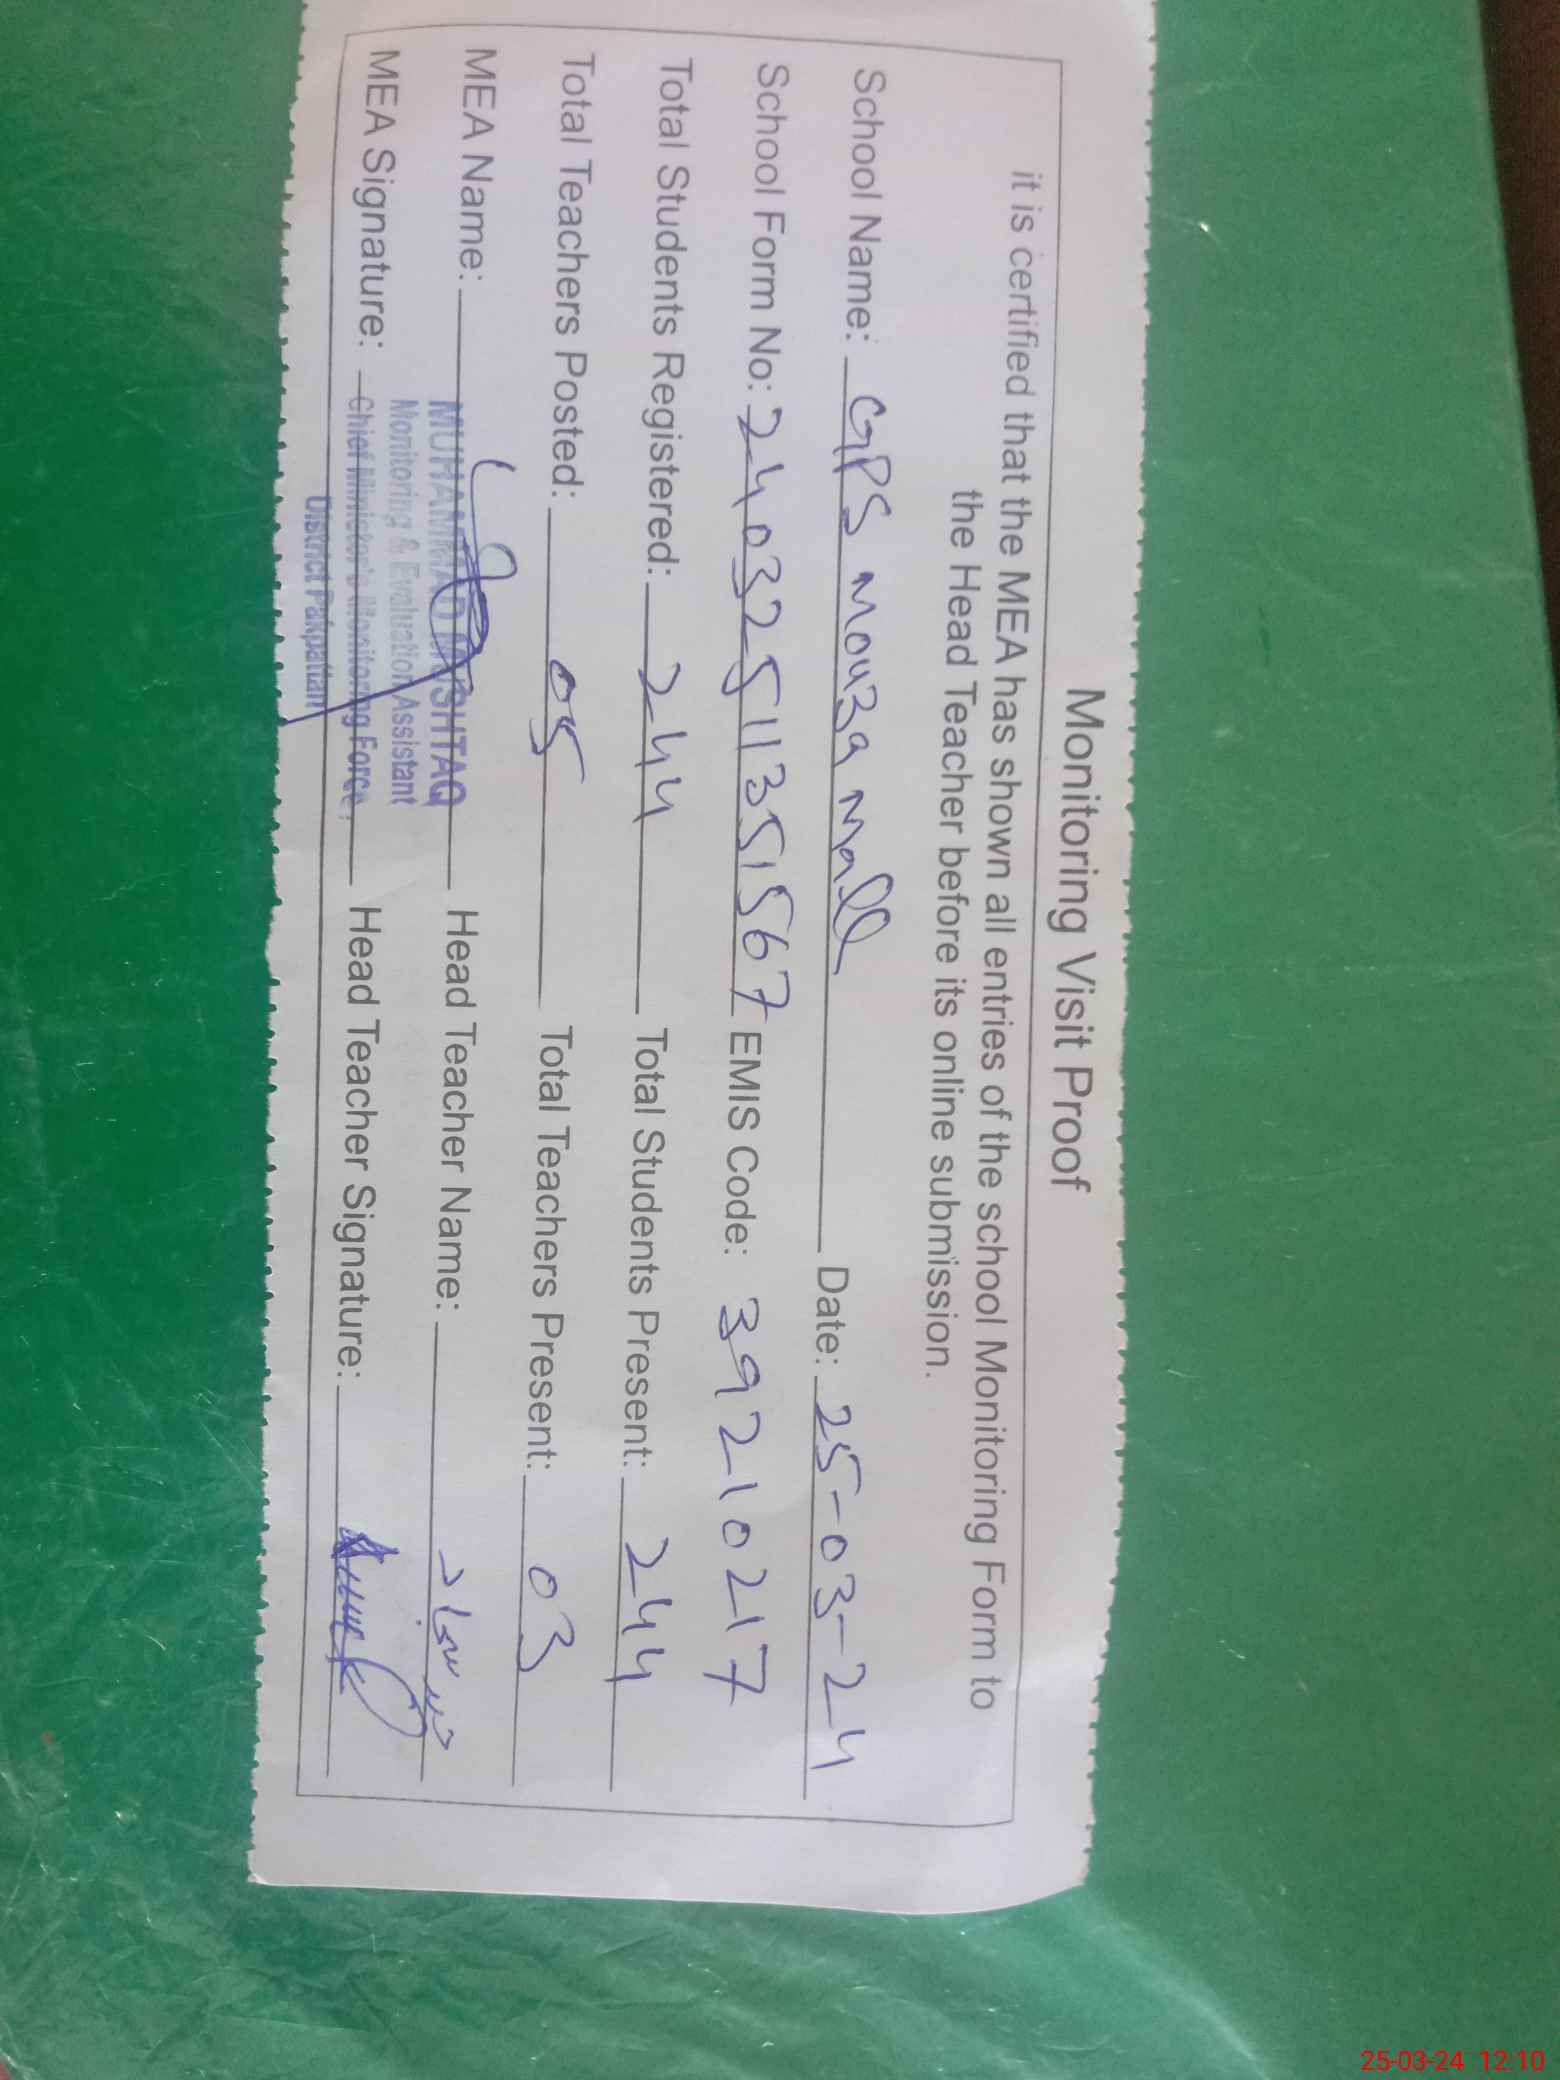 Monitoring Visit Proof
it is certified that the MEA has shown all entries of the school Monitoring Form to
the Head Teacher before its online submission.
School Name: GPS Mouza Mall Date: 25-03-24
School Form No: 24032511351567 EMIS Code: 39210217
Total Students Registered: 244 Total Students Present: 244
Total Teachers Posted: 05 Total Teachers Present: 03
MEA Name: MUHAMMAD MUSHTAQ Head Teacher Name:
Monitoring & Evaluation Assistant
MEA Signature: Chief Minister's Monitoring Force, Head Teacher Signature:
District Pakpattan
25-03-24 12:10